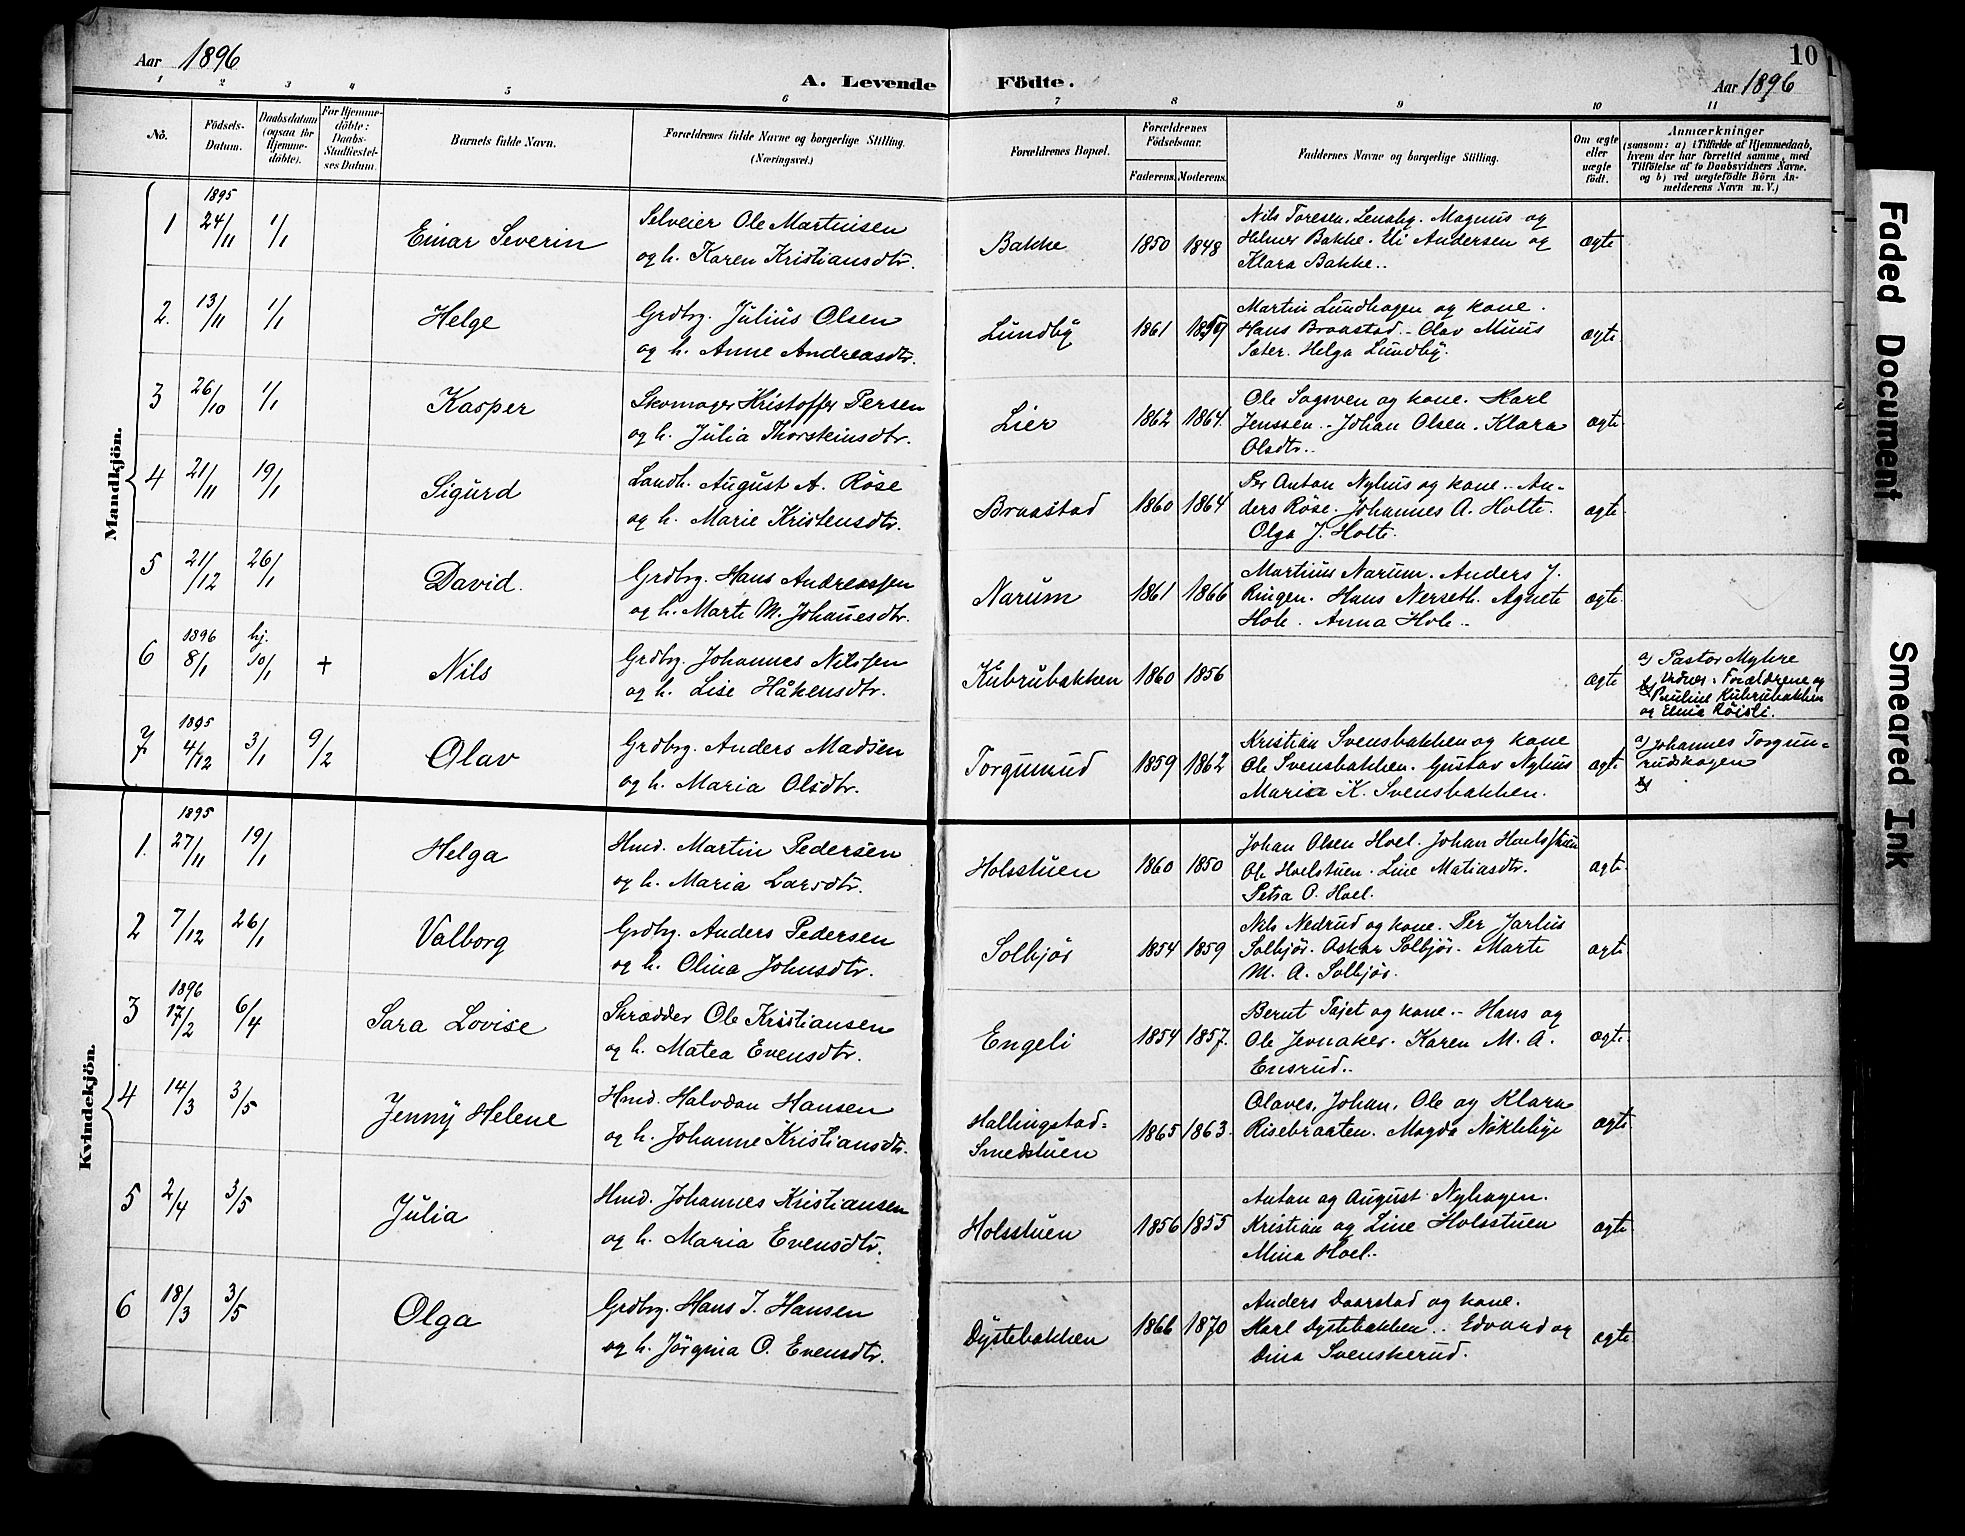 Aar 1896
A. Levende Födte.
10
Aar 1896
1 2 3 4 5 6 7 8 9 10 11
No.
Födsels-Datum.
Daabsdatum (ogsaa for Hjemme-döbte).
For Hjemme-döbte: Daabs-Stadfæstel-ses Datum.
Barnets fulde Navn.
Forældrenes fulde Navne og borgerlige Stilling. (Næringsvei.)
Forældrenes Bopæl.
Forældrenes Födselsaar.
Faderens. Moderens.
Faddernes Navne og borgerlige Stilling.
Om ægte eller uægte födt.
Anmærkninger
(saasom: a) i Tilfælde af Hjemmedaab, hvem der har forrettet samme, med Tilföielse af to Daabsvidners Navne. og b) ved uægtefödte Börn Anmelderens Navn m. V.)
Mandkjön.
1895
1 24/11 1/1 Einar Severin Selveier Ole Martinisen Bakke 1850 1848 Nils Toresen, Lensby. Magnus og ægte
og h. Karen Kristiansdtr. Helmer Bakke. Eli Andersen og
Klara Bakke..
2. 13/11 1/1 Helge Grdbrg. Julius Olsen Lundby 1861 1859 Martin Lundhagen og kone. ægte
og h. Anne Andreasdtr. Hans Braastad.- Olav Muus
Sæter. Helga Lundby.
3 26/10 1/1 Kasper Skomager Kristoffer Persen Lier 1862 1864. Ole Sagsven og kone. Karl ægte
og h. Julia Thorsteinsdtr. Jenssen.. Johan Olsen. Klara
Olsdtr..
4 21/11 19/1 Sigurd Landh. August A. Röse Braastad 1860 1864 Per Anton Nyhus og kone.. An- ægte
og h. Marie Kristensdtr. ders Röse. Johannes A. Holte.
Olga J. Holte.
5 21/12 26/1 David. Grdbrg. Hans Andreassen Narum 1861 1866 Martius Narum. Anders J. ægte
og h. Marte M. Johanesdtr. Ringen. Hans Nerseth. Agnete
Hole. Anna Hole..
1896 hj.
6 8/1 10/1 + Nils Grdbrg. Johannes Nilssen Kubrubakken 1860 1856 ægte a) Pastor Myhre
og h. Lise Håkensdtr. Vidner: Forældrene og
Pauline Kubrubakken
og Elina Röisli.
1895
7. 4/12 3/1 9/2 Olav Grdbrg. Anders Madsen Torgunrud 1859 1862 Kristian Svensbakken og kone ægte a) Johannes Torgun-
og h. Maria Olsdtr. Ole Svensbakken. Gustav Nyhus rudskogen
Maria K. Svensbakken.
Kvindekjön.
1895
1. 27/11 19/1 Helga Hmd. Martin Pedersen Holsstuen 1860 1850 Johan Olsen Hoel. Johan Hoelsstuen ægte
og h. Maria Larsdtr. Ole Hoelstuen. Line Matiasdtr.
Petra O. Hoel.
2 7/12 26/1 Valborg Grdbrg. Anders Pedersen Solbjör 1854 1859 Nils Nedrud og kone. Per Jarlius ægte
og h. Olina Johnsdtr. Solbjör. Oskar Solbjör. Marte
M. A. Solbjör.
1896
3 17/2 6/4 Sara Lovise Skrædder Ole Kristiansen Engeli 1854 1857. Bernt Tajet og kone.- Hans og ægte
og h. Matea Evensdtr. Ole Jevnaker. Karen M. A.
Ensrud..
4 14/3 3/5 Jenny Helene Hmd. Halvdan Hansen Hallingstad- 1865 1863. Olaves, Johan, Ole og Klara ægte
og h. Johanne Kristiansdtr. Smedstuen Risebraaten. Magda Nöklebye
5 2/4 3/5 Julia Hmd. Johannes Kristiansen Holsstuen 1856 1855 Anton og August Nyhagen. ægte
og h. Maria Evensdtr. Kristian og Line Holsstuen
Mina Hoel..
6 18/3 3/5 Olga Grdbrg. Hans I. Hansen Dystebakken 1866 1870 Anders Daarstad og kone. ægte
og h. Jörgina O. Evensdtr. Karl Dystebakken.. Edvard og
Dina Svenskerud.
Faded Document
Smeared Ink